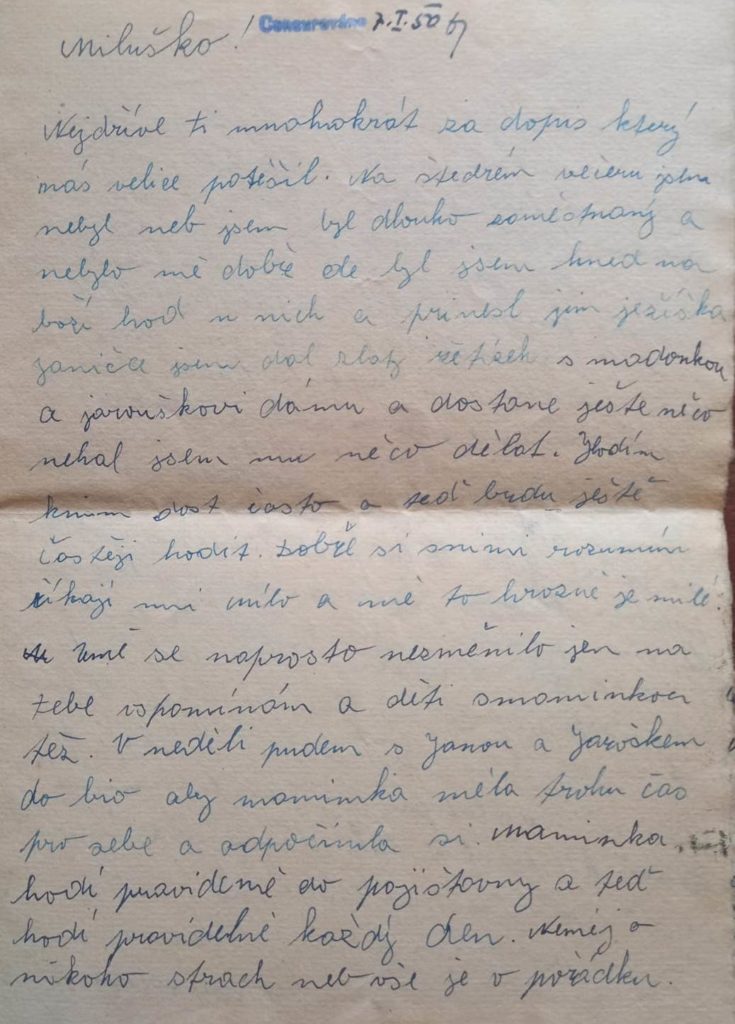 Censurováno 7.I.50
Miluško!
Nejdříve ti mnohokrát za dopis který
nás velice potěšil. Na štedrém večeru jsem
nebyl neb jsem byl dlouho zaměstnaný a
nebylo mě dobře de byl jsem hned na
boží hod u nich a prinesl jim ježíška
Janičce jsem dal zlatý řetízek s madonkou
a jarouškovi dámu a dostane ješte něco
nehal jsem mu něco dělat. Hodím
knim dost často a teď budu ještě
častěji hodit. Dobře si snimi rozumím
říkají mi mílo a mě to hrozně je milé.
Země se naprosto nezměnilo jen na
tebe vspomínám a děti smaminkou
též. V neděli pudem s Janou a Jaroškem
do bio aby maminka měla trohu čas
pro sebe a odpočinula si. Maminka
hodí pravidemě do pojišťovny a teď
hodí pravidelně každý den. Neměj o
nikoho strach neb vše je v pořádku.